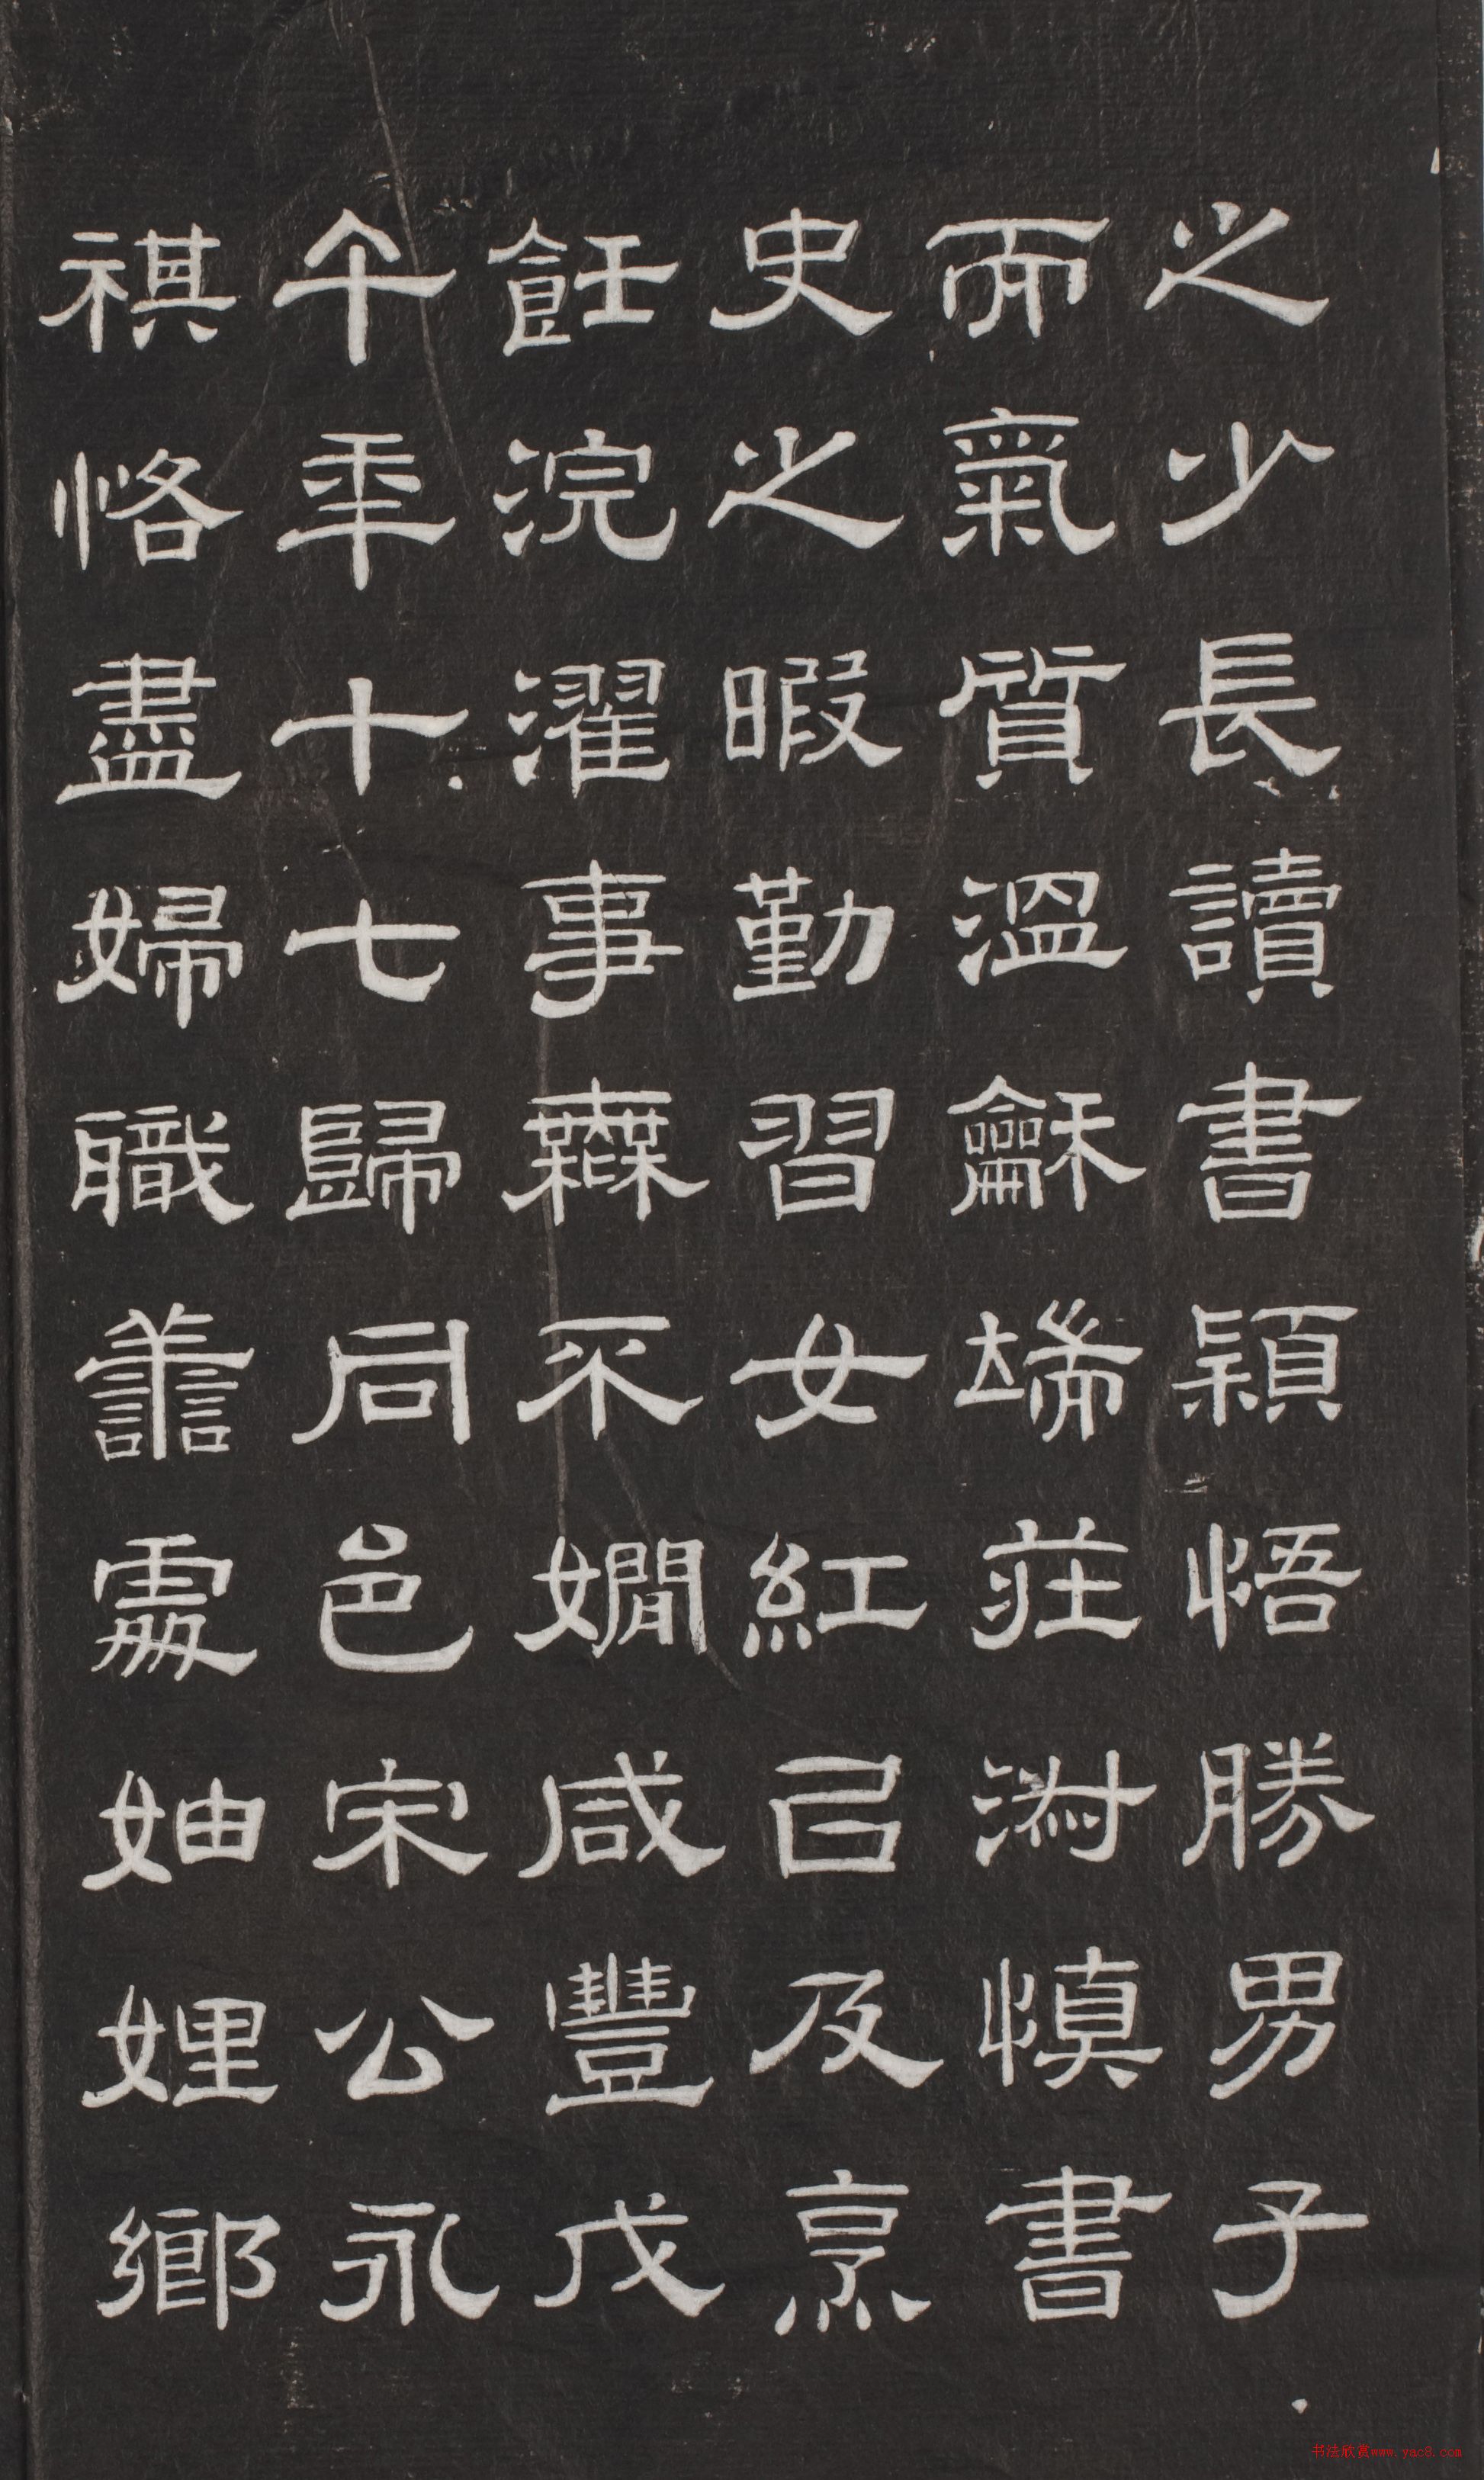 之少長讀書穎悟勝男子
而氣質溫龢端莊澍慎書
史之暇勤習女紅㠯及烹
飪浣濯事無不嫺咸豐戊
午年十七歸同邑宋公永
祺恪盡婦職譱處妯娌鄉
书法欣赏www.yac8.com